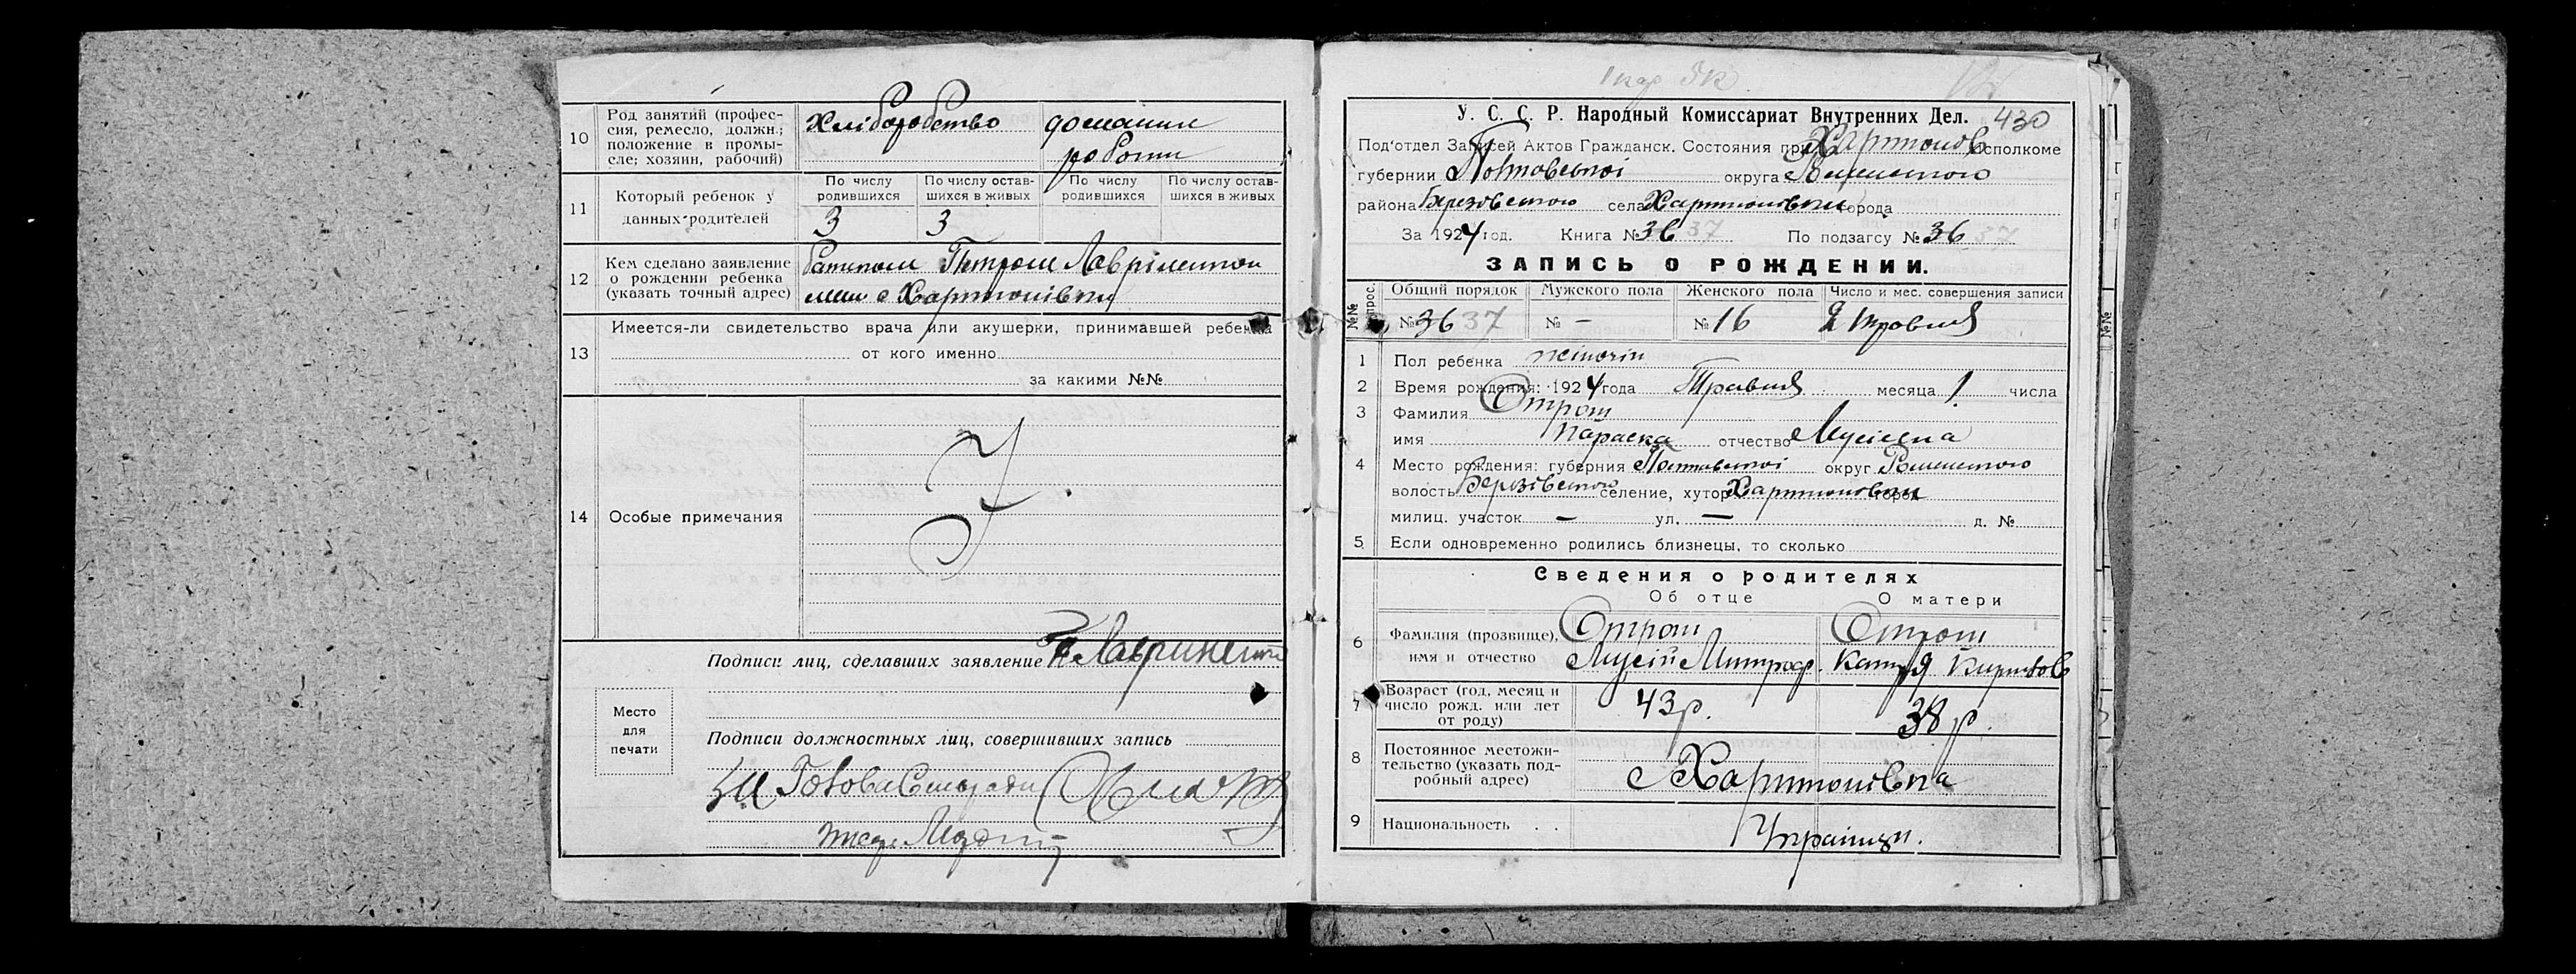 10 Род занятий (профес-
сия, ремесло, должн.;
положение в промы-
сле; хозяин, рабочий)
Хліборобство домашни
роботи
11 Который ребенок у
данных родителей
По числу
родившихся
По числу остав-
шихся в живых
По числу
родившихся
По числу остав-
шихся в живых
3 3
12 Кем сделано заявление
о рождении ребенка
(указать точный адрес)
батьком Петром Лаврі
меш с Харитонівки
13 Имеется-ли свидетельство врача или акушерки, принимавшей ребенка
от кого именно
за какими №№
14 Особые примечания
Подписи лиц, сделавших заявление
Место
для
печати
Подписи должностных лиц, совершивших запись
За Голова Сільради
430
У. С. С. Р. Народный Комиссариат Внутренних Дел.
Под'отдел Записей Актов Гражданск. Состояния при Харитонов исполкоме
губернии Полтавської округа Роменского
района Березовского села Харитоновки города
За 1924 год. Книга № 36 37 По подзагсу № 36 37
ЗАПИСЬ О РОЖДЕНИИ.
№№ вопрос.
Общий порядок Мужского пола Женского пола Число и мес. совершения записи
№ 36 37 № — № 16 2 травня
1 Пол ребенка жіночін
2 Время рождения: 1924 года Травня месяца 1 числа
3 Фамилия Отрош
имя Параска отчество Мусіевна
4 Место рождения: губерния Полтавської округ Роменского
волость Березовского селение, хутор Харитоновки город
милиц. участок — ул. — д. №
5 Если одновременно родились близнецы, то сколько
Сведения о родителях
Об отце О матери
6 Фамилия (прозвище),
имя и отчество
Отрош Отрош
Мусій Митроф. Катря Кирилов
7 Возраст (год, месяц и
число рожд. или лет
от роду)
43 р. 38 р.
8 Постоянное местожи-
тельство (указать под-
робный адрес)
с Харитонівка
9 Национальность . .
Украінци.